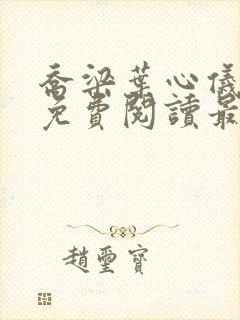 喬梁葉心儀
免費閱讀最
趙璽寶